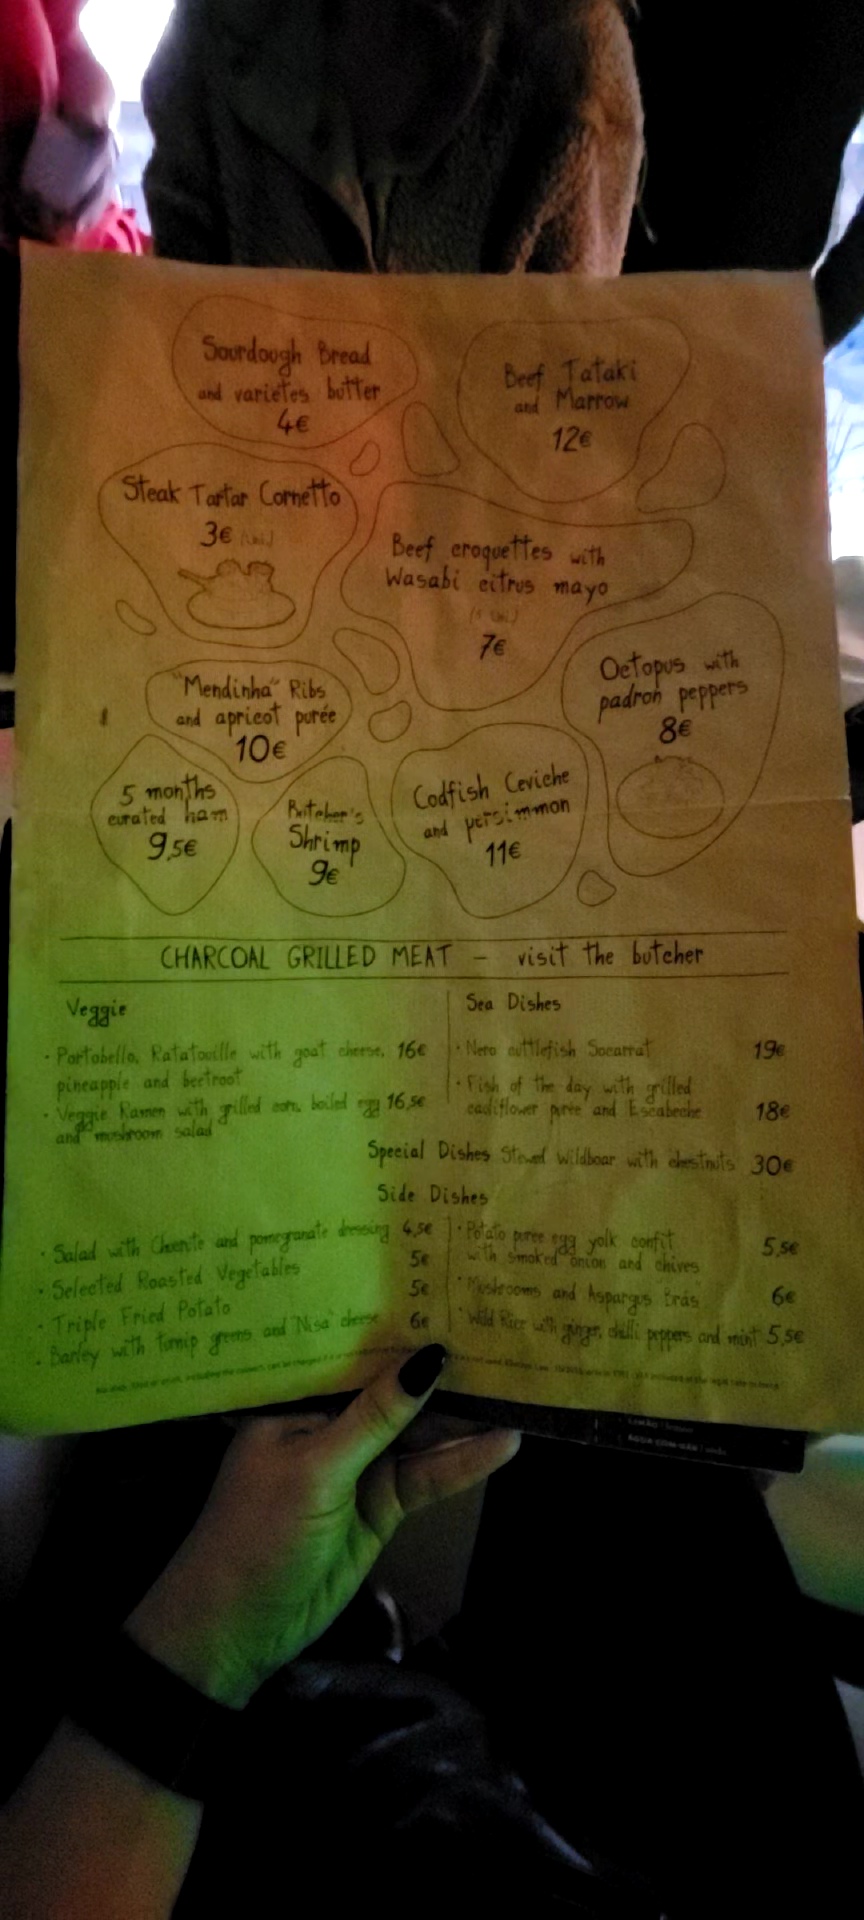 Sourdough Bread
and varietes butter
4€
Beef Tataki
and Marrow
12€
Steak Tartar Cornetto
3€ (uni)
Beef croquettes with
Wasabi citrus mayo
7€
Octopus with
padron peppers
8€
"Mendinha" Ribs
and apricot purée
10€
5 months
curated ham
9,5€
Butcher's
Shrimp
9€
Codfish Ceviche
and persimmon
11€
CHARCOAL GRILLED MEAT - visit the butcher
Veggie
• Portobello, Ratatouille with goat cheese, 16€
pineapple and beetroot
• Veggie Ramen with grilled corn, boiled egg 16,5€
and mushroom salad
Sea Dishes
• Nero cuttlefish Socarrat 19€
• Fish of the day with grilled
cauliflower purée and Escabeche 18€
Special Dishes Stewed Wildboar with chestnuts 30€
Side Dishes
• Salad with and pomegranate dressing 4,5€
• Selected Roasted Vegetables 5€
• Triple Fried Potato 5€
• Barley with turnip greens and "Nisa" cheese 6€
• Potato puree egg yolk confit
with smoked onion and chives 5,5€
• Mushrooms and Aspargus Brás 6€
• Wild Rice with ginger, chilli peppers and mint 5,5€